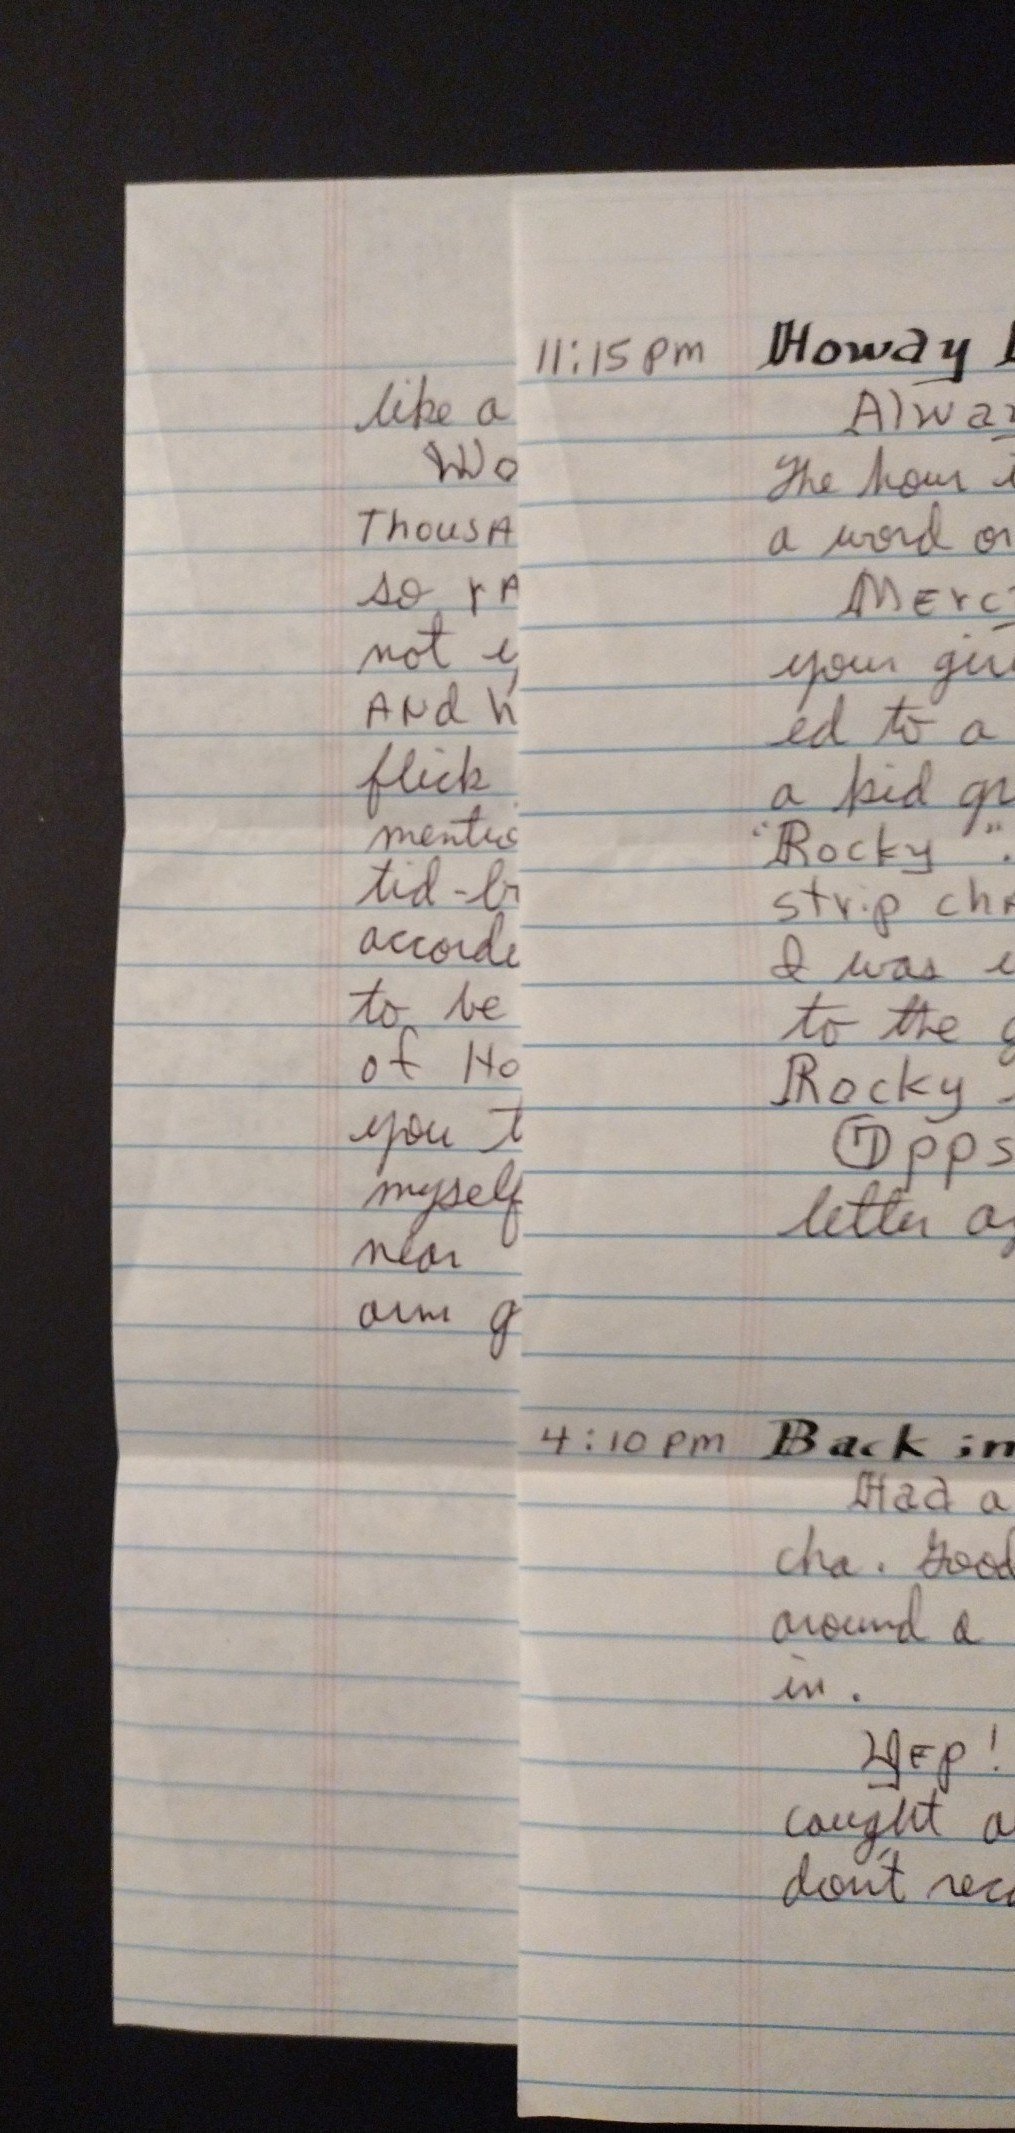 like a
Wo
ThousA
so rA
not
ANd h
flick
mentio
tid-bi
accorde
to be
of Ho
you t
myself
near
arm g
11:15 pm Howdy
Alway
The hour i
a word or
Mercy
your gir
ed to a
a kid gr
"Rocky".
strip chA
I was
to the g
Rocky
Opps
letter
4:10 pm Back in
Had a
cha. Good
around a
in.
Yep!
caught
don't reca